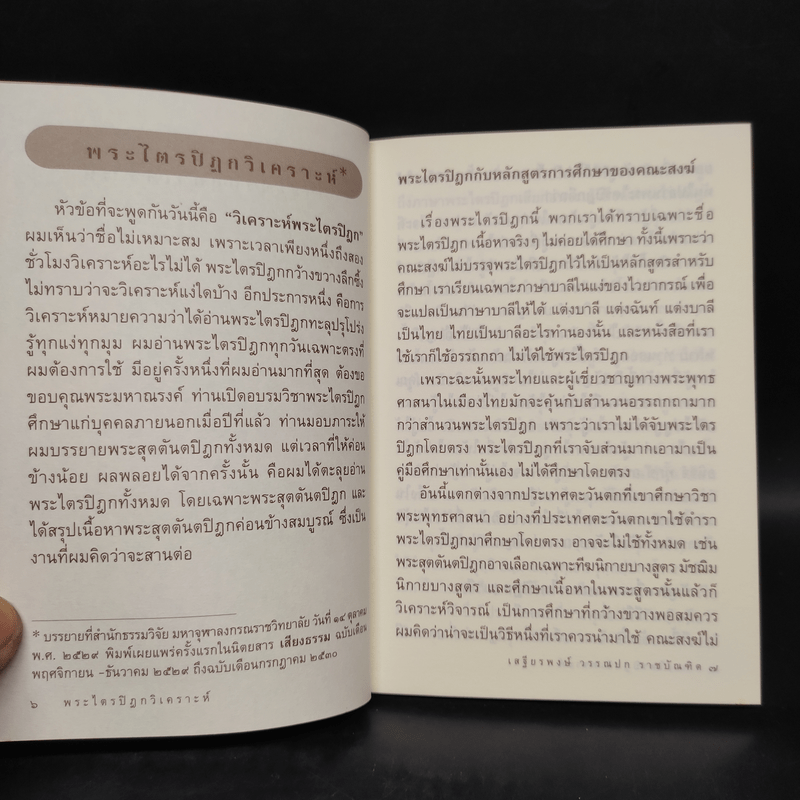 พระไตรปิฎกวิเคราะห์*
หัวข้อที่จะพูดกันวันนี้คือ “วิเคราะห์พระไตรปิฎก”
ผมเห็นว่าชื่อไม่เหมาะสม เพราะเวลาเพียงหนึ่งถึงสอง
ชั่วโมงวิเคราะห์อะไรไม่ได้ พระไตรปิฎกกว้างขวางลึกซึ้ง
ไม่ทราบว่าจะวิเคราะห์แง่ใดบ้าง อีกประการหนึ่ง คือการ
วิเคราะห์หมายความว่าได้อ่านพระไตรปิฎกทะลุปรุโปร่ง
รู้ทุกแง่ทุกมุม ผมอ่านพระไตรปิฎกทุกวันเฉพาะตรงที่
ผมต้องการใช้ มีอยู่ครั้งหนึ่งที่ผมอ่านมากที่สุด ต้องขอ
ขอบคุณพระมหาณรงค์ ท่านเปิดอบรมวิชาพระไตรปิฎก
ศึกษาแก่บุคคลภายนอกเมื่อปีที่แล้ว ท่านมอบภาระให้
ผมบรรยายพระสุตตันตปิฎกทั้งหมด แต่เวลาที่ให้ค่อน
ข้างน้อย ผลพลอยได้จากครั้งนั้น คือผมได้ตะลุยอ่าน
พระไตรปิฎกทั้งหมด โดยเฉพาะพระสุตตันตปิฎก และ
ได้สรุปเนื้อหาพระสุตตันตปิฎกค่อนข้างสมบูรณ์ ซึ่งเป็น
งานที่ผมคิดว่าจะสานต่อ
* บรรยายที่สำนักธรรมวิจัย มหาจุฬาลงกรณราชวิทยาลัย วันที่ ๑๔ ตุลาคม
พ.ศ. ๒๕๒๙ พิมพ์เผยแพร่ครั้งแรกในนิตยสาร เสียงธรรม ฉบับเดือน
พฤศจิกายน -ธันวาคม ๒๕๒๙ ถึงฉบับเดือนกรกฎาคม ๒๕๓๐
๖ พระไตรปิฎกวิเคราะห์
พระไตรปิฎกกับหลักสูตรการศึกษาของคณะสงฆ์
เรื่องพระไตรปิฎกนี้ พวกเราได้ทราบเฉพาะชื่อ
พระไตรปิฎก เนื้อหาจริงๆ ไม่ค่อยได้ศึกษา ทั้งนี้เพราะว่า
คณะสงฆ์ไม่บรรจุพระไตรปิฎกไว้ให้เป็นหลักสูตรสำหรับ
ศึกษา เราเรียนเฉพาะภาษาบาลีในแง่ของไวยากรณ์ เพื่อ
จะแปลเป็นภาษาบาลีให้ได้ แต่งบาลี แต่งฉันท์ แต่งบาลี
เป็นไทย ไทยเป็นบาลีอะไรทำนองนั้น และหนังสือที่เรา
ใช้เราก็ใช้อรรถกถา ไม่ได้ใช้พระไตรปิฎก
เพราะฉะนั้นพระไทยและผู้เชี่ยวชาญทางพระพุทธ
ศาสนาในเมืองไทยมักจะคุ้นกับสำนวนอรรถกถามาก
กว่าสำนวนพระไตรปิฎก เพราะว่าเราไม่ได้จับพระไตร
ปิฎกโดยตรง พระไตรปิฎกที่เราจับส่วนมากเอามาเป็น
คู่มือศึกษาเท่านั้นเอง ไม่ได้ศึกษาโดยตรง
อันนี้แตกต่างจากประเทศตะวันตกที่เขาศึกษาวิชา
พระพุทธศาสนา อย่างที่ประเทศตะวันตกเขาใช้ตำรา
พระไตรปิฎกมาศึกษาโดยตรง อาจจะไม่ใช้ทั้งหมด เช่น
พระสุตตันตปิฎกอาจเลือกเฉพาะทีฆนิกายบางสูตร มัชฌิม
นิกายบางสูตร และศึกษาเนื้อหาในพระสูตรนั้นแล้วก็
วิเคราะห์วิจารณ์ เป็นการศึกษาที่กว้างขวางพอสมควร
ผมคิดว่าน่าจะเป็นวิธีหนึ่งที่เราควรนำมาใช้ คณะสงฆ์ไม่
เสฐียรพงษ์ วรรณปก ราชบัณฑิต ๗